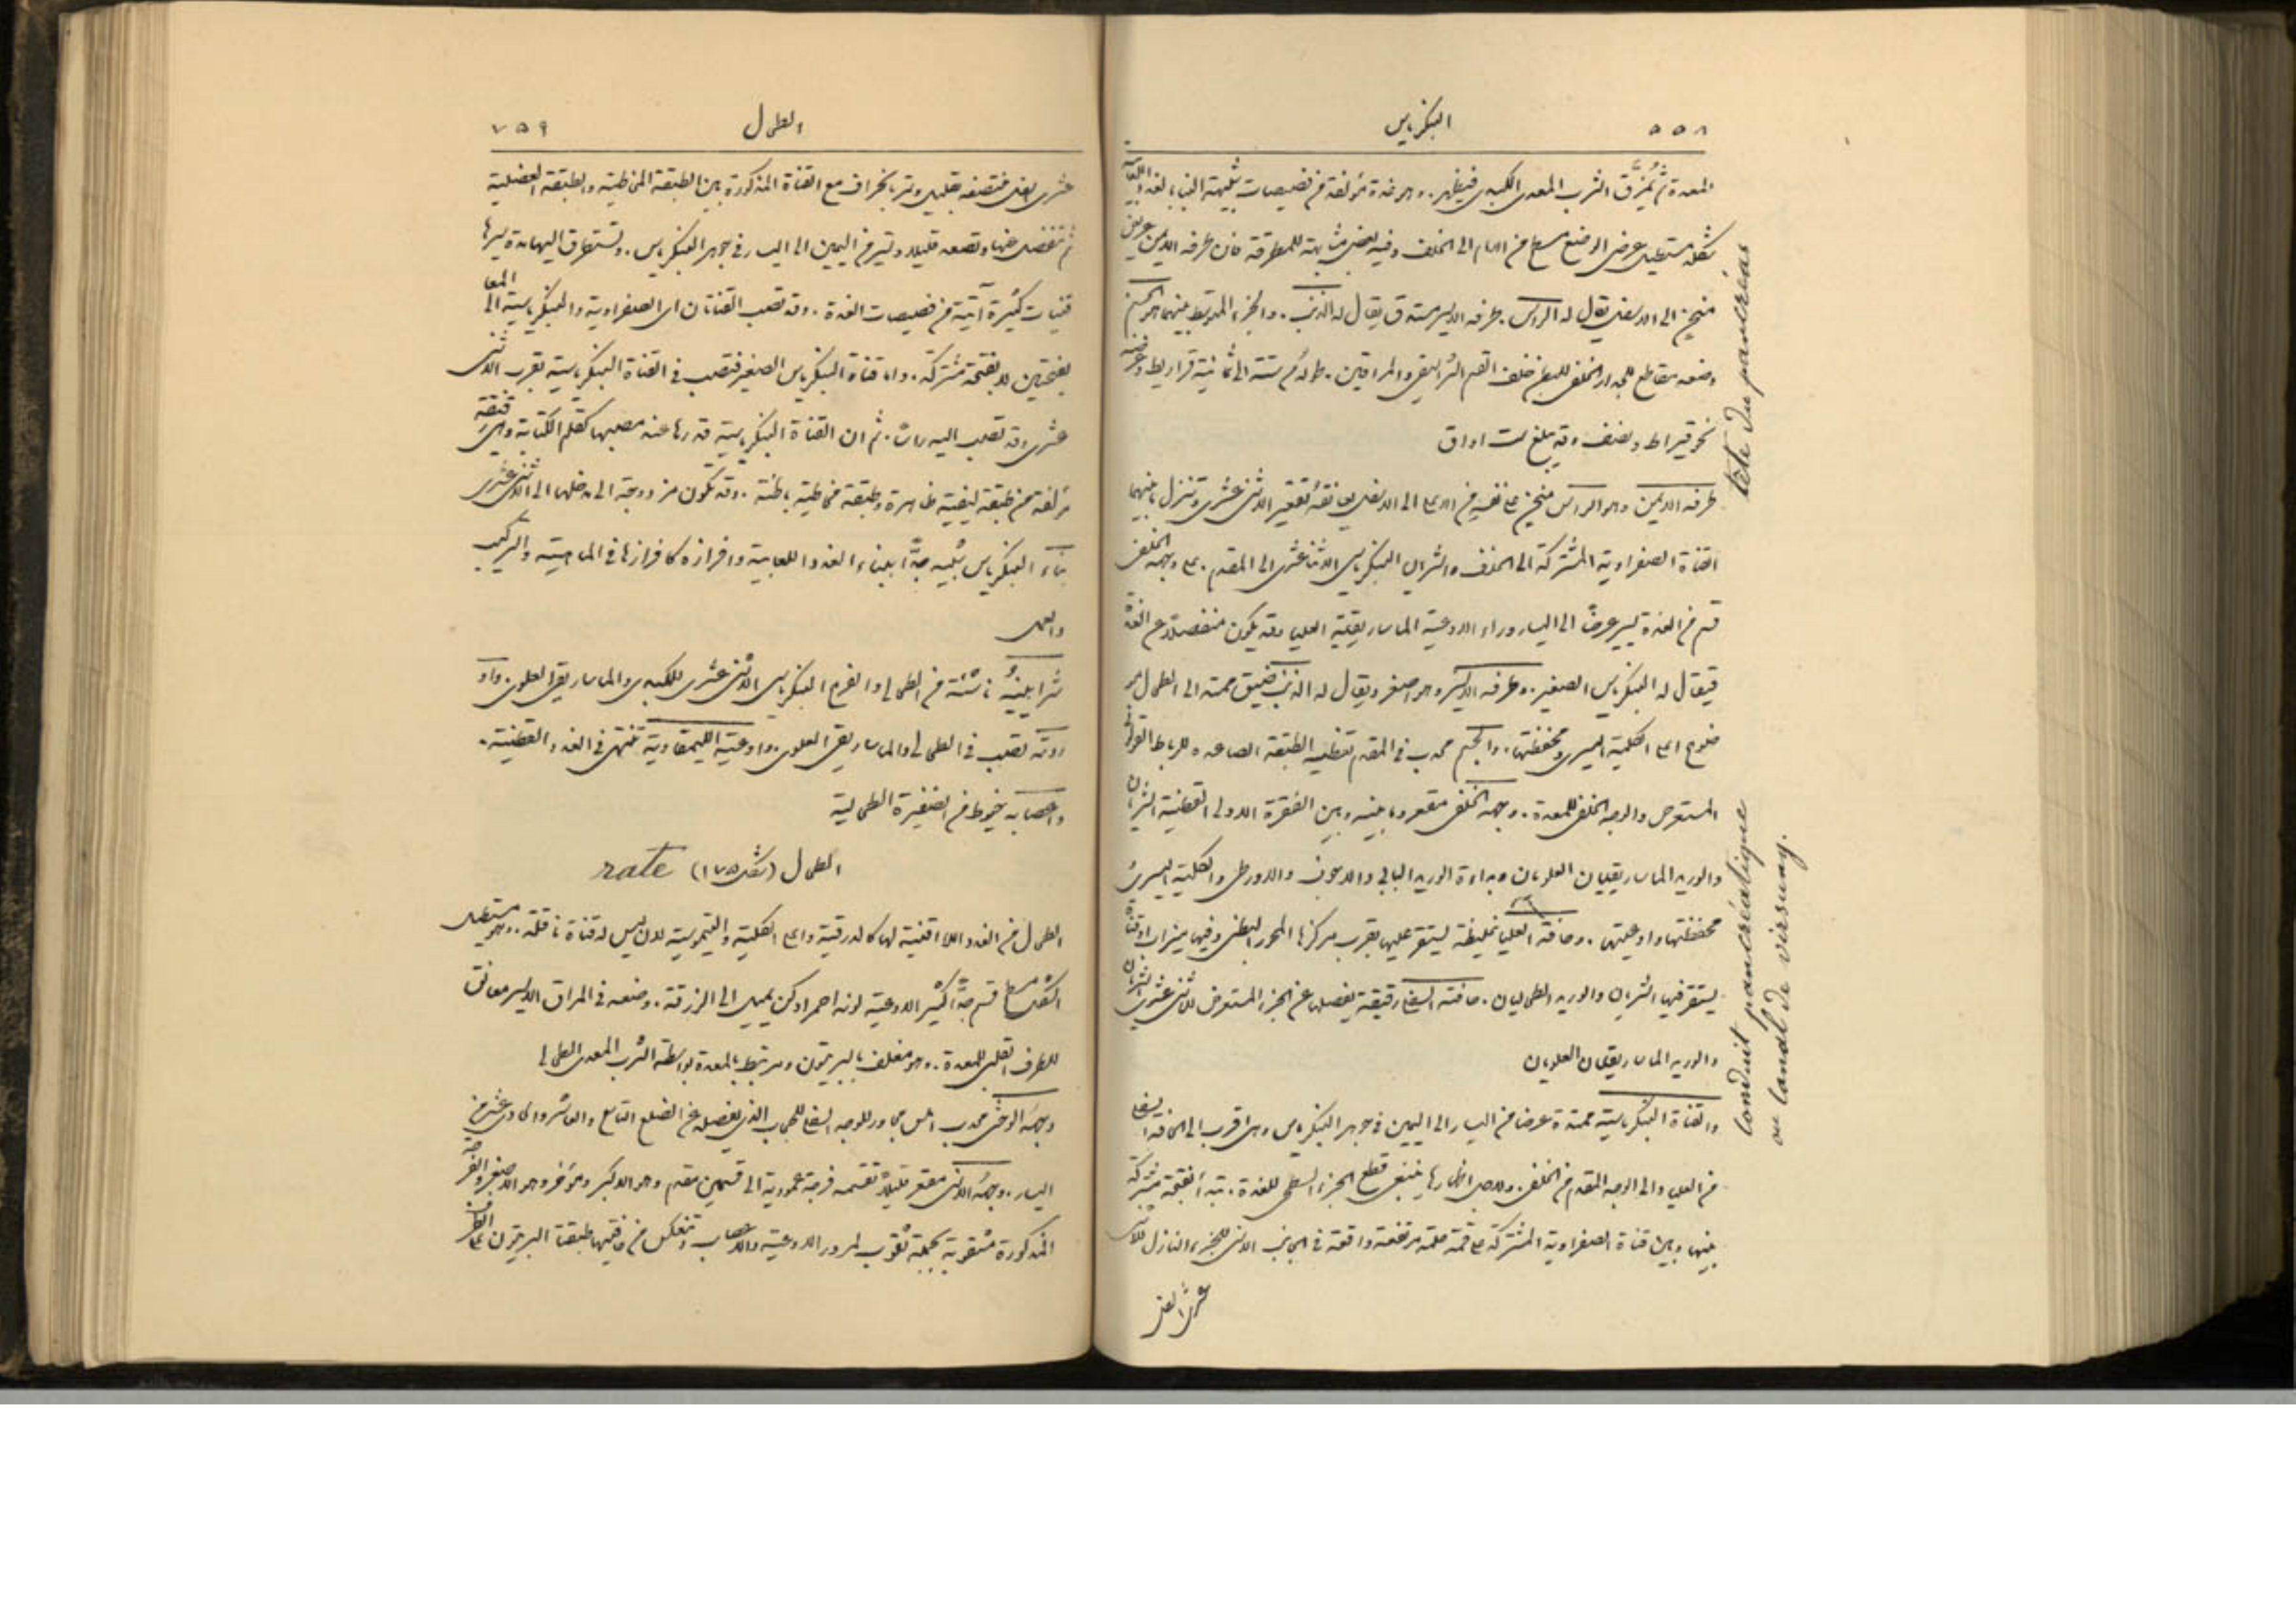 ٥٥٨ البنكرياس
المعدة ثم يُمزَّق الثرب المعدي الكبدي فيظهر. وهو غدة مؤلفة من فصيصات شبيهة البناء بالغدد اللعابية
شكله مستطيل عرضي الوضع مسطح من الامام الى الخلف وفيه بعض مشابهة للمطرقة فان طرفه الايمن عريض
منحنٍ الى الاسفل يقال له الراس. وطرفه الايسر مستدق يقال له الذنب. والجزء المتوسط بينهما هو الجسم
وضعه مقاطع للجدار الخلفي للبطن خلف القسم الشراسيفي والمراقين. طوله من ستة الى ثمانية قراريط وعرضه
نحو قيراط ونصف وقد يبلغ ست اواق
طرفه الايمن وهو الراس منحنٍ على نفسه من الاعلى الى الاسفل يعانقه تقعير الاثني عشري وتنزل بينهما
القناة الصفراوية المشتركة الى الخلف والشريان البنكرياسي الاثنا عشري الى المقدم. على وجهه الخلفي
قسم من الغدة يسير عرضًا الى اليسار وراء الاوعية الماساريقية العليا وقد يكون منفصلاً عن الغدة
فيقال له البنكرياس الصغير. وطرفه الايسر وهو اصغر ويقال له الذنب ضيق ممتد الى الطحال
فوق اعلى الكلية اليسرى ومحفظتها. والجسم محدب في المقدم تغطيه الطبقة الصاعدة للرباط القولوني
المستعرض والوجه الخلفي للمعدة. ووجهه الخلفي مقعر وما بينه وبين الفقرة الاولى القطنية الشريان
والوريد الماساريقيان العلويان وبداءة الوريد البابي والاجوف والاورطي والكلية اليسرى
محفظتها واوعيتها. وحافته العليا غليظة يستقر عليها بقرب مركزها المحور البطني وفيها ميزاب او قناة
يستقر فيها الشريان والوريد الطحاليان. حافته السفلى رقيقة يفصلها عن الجزء المستعرض للاثني عشري الشريان
والوريد الماساريقيان العلويان
والقناة البنكرياسية ممتدة عرضا من اليسار الى اليمين في جوهر البنكرياس وهي اقرب الى الحافة السفلى
من العليا والى الوجه المقدم من الخلفي. ولاجل اظهارها ينبغي قطع الجزء السطحي للغدة. تبتدأ بفتحة مشتركة
بينها وبين قناة الصفراوية المشتركة على قمة حلمة مرتفعة واقعة في الجانب الانسي للجزء النازل للاثني
عشري
tête du pancréas
conduit pancréatique
ou canal de virsung.
الطحال ٧٥٩
عشري السفلي فتصغر بقليل وتمر بانحراف مع القناة المذكورة بين الطبقة المخاطية والطبقة العضلية
ثم تنفصل عنها وتصعد قليلاً وتسير من اليمين الى اليسار في جوهر البنكرياس. وتستطرق اليها مدة سيرها
قنيات كثيرة آتية من فصيصات الغدة. وقد تصب القناتان اي الصفراوية والبنكرياسية الى المعا
بفتحتين لا بفتحة مشتركة. واما قناة البنكرياس الصغير فتصب في القناة البنكرياسية بقرب الاثني
عشري وقد تصب اليه راسًا. ثم ان القناة البنكرياسية قدرها عند مصبها كقلم الكتابة وهي رقيقة
مؤلفة من طبقة ليفية ظاهرة وطبقة مخاطية باطنة. وقد تكون مزدوجة الى مدخلها الى الاثني عشري
بناء البنكرياس شبيه جدًّا ببناء الغدد اللعابية وافرازه كافرازها في الماهية والتركيب
والعمل
شرايينهُ ناشئة من الطحالي والفرع البنكرياسي الاثني عشري للكبدي والماساريقي العلوي. واو
ردته تصب في الطحالي والماساريقي العلوي. واوعيته الليمفاوية تنتهي في الغدد القطنية.
واعصابه خيوط من الضفيرة الطحالية
الطحال (شكل ١٧٥) rate
الطحال من الغدد اللا اقنية لها كالدرقية واعلى الكلية والثيموسية لانه ليس له قناة ناقلة. وهو مستطيل
الشكل مسطح قسم جدًّا كثير الاوعية لونه احمر ادكن يميل الى الزرقة. وضعه في المراق الايسر معانق
للطرف القلبي للمعدة. وهو مغلف بالبريتون ومرتبط بالمعدة بواسطة الثرب المعدي الطحالي
وجههُ الوحشي محدب املس مجاور للوجه السفلي للحجاب الذي يفصله عن الضلع التاسع والعاشر والحادي عشر من
اليسار. وجههُ الانسي مقعر قليلاً تقسمه فرجة عمودية الى قسمين مقدم وهو الاكبر ومؤخر وهو الاصغر والفرجة
المذكورة مثقوبة بجملة ثقوب لمرور الاوعية والاعصاب وتنعكس من حافتيها طبقتا البريتون على